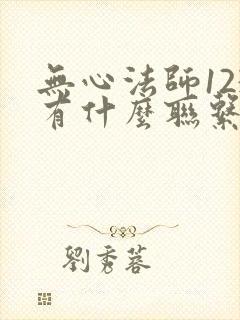 無心法師12
有什麼聯繫
劉秀蓉